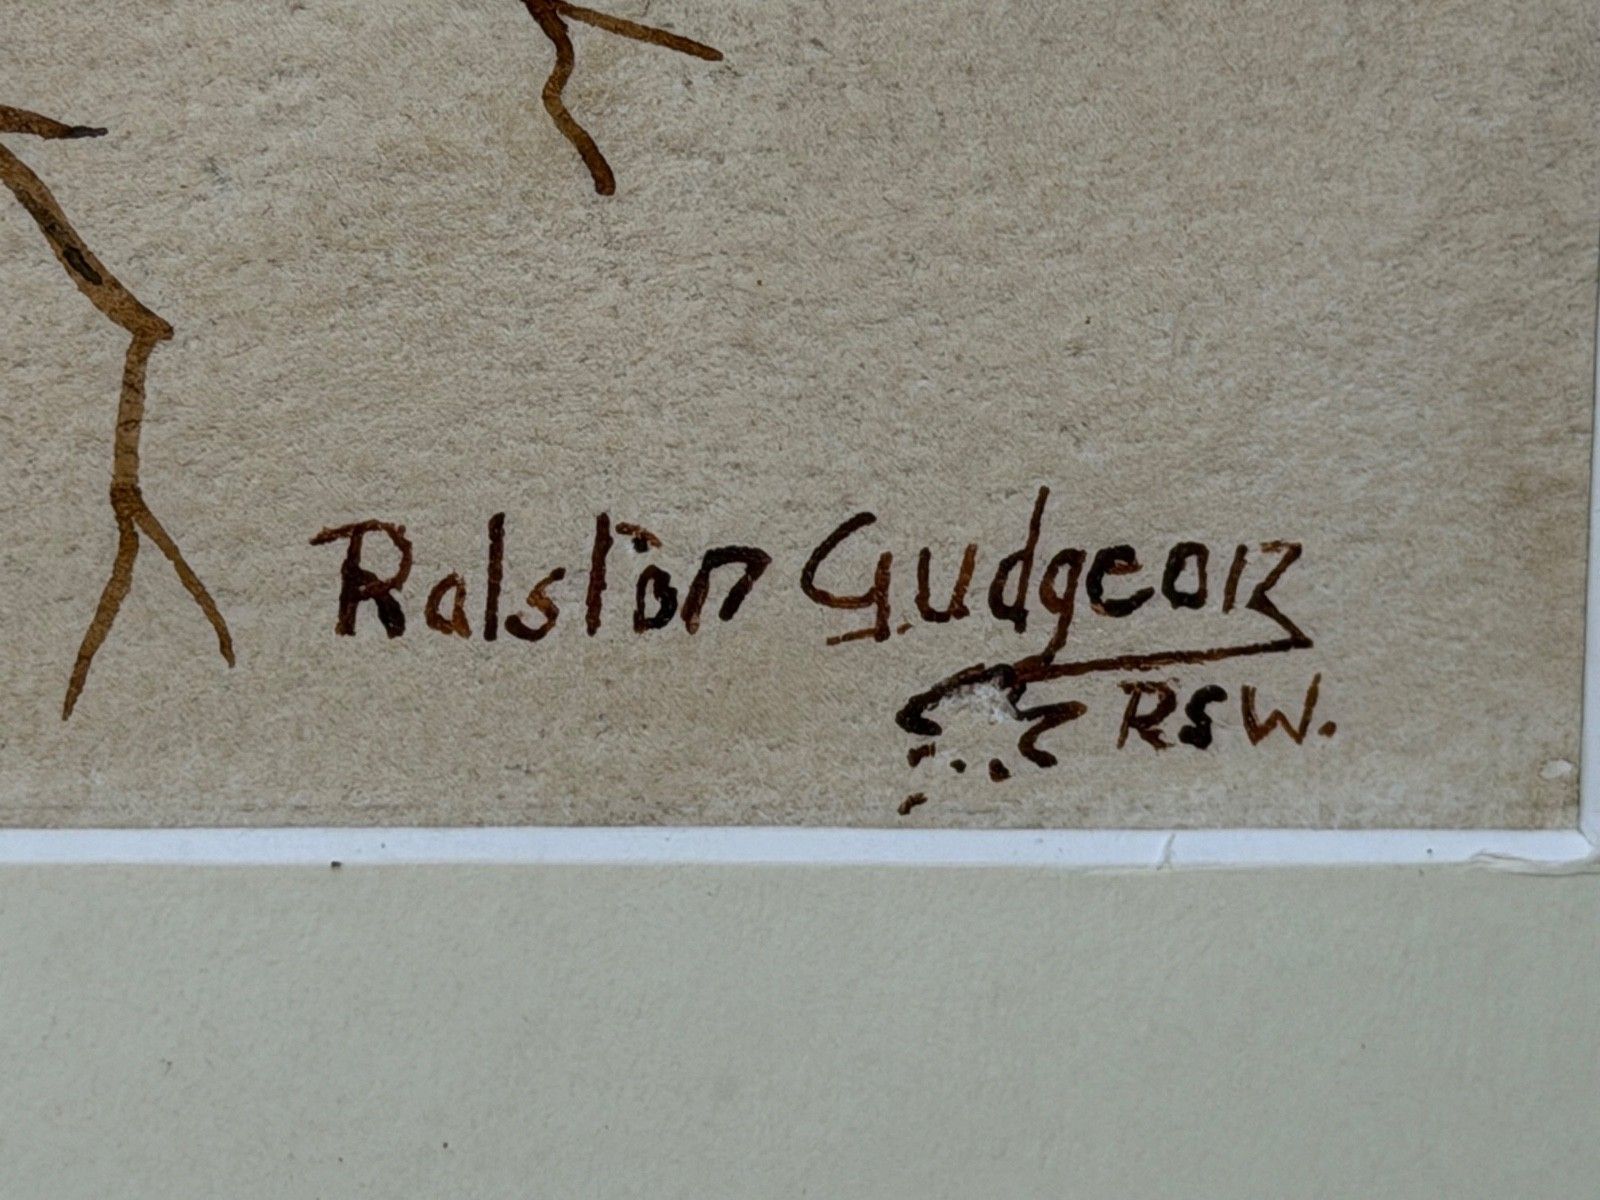 Ralston Gudgeon
RSW.